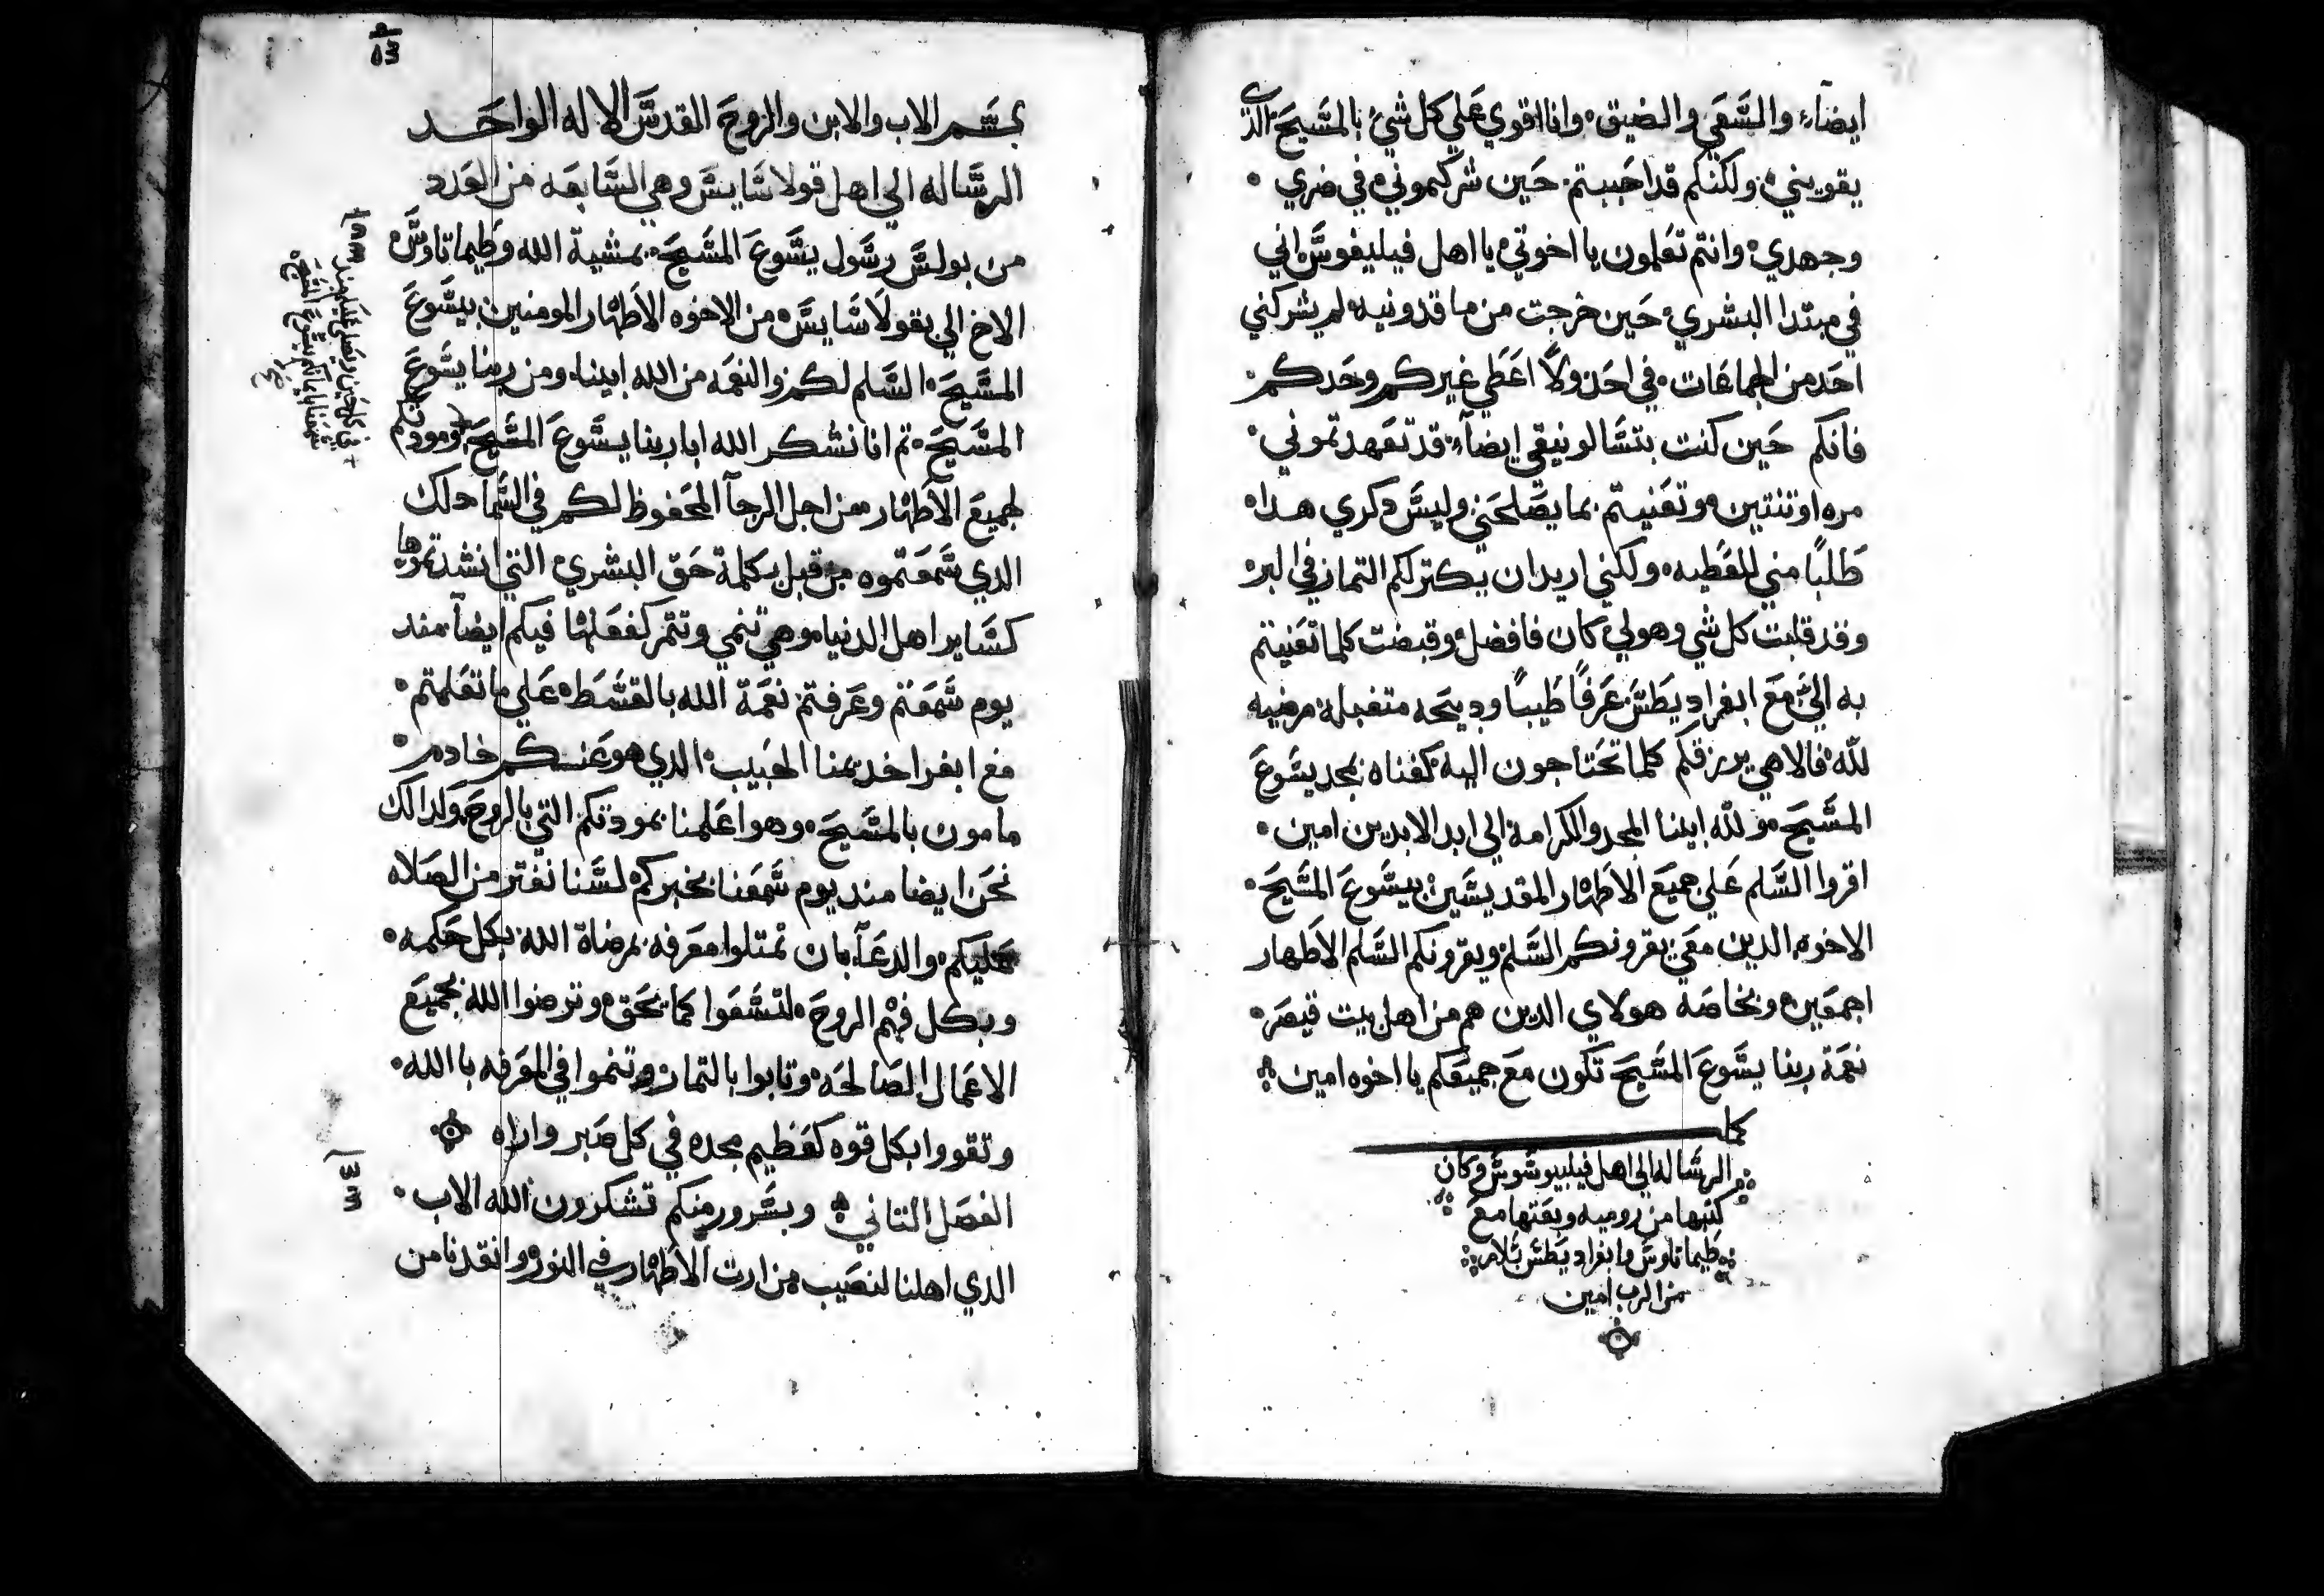 ايضاً، والسَّعَي والضيق، وانا اقوي عَلي كل شيء بالمسَّيحَ الدي
يقويني، ولكنكم قد احَببتم حَين شركتموني في ضري
وجهدي، وانتم تعَلمون يا اخوتي يا اهل فيليفوسَّ اني
في مبتدا البشري حَين خرجت من ماقدونيه لم يشركني
احَد من الجماعَات في احَد ولا اعَطَي غيركم وحَدكم
فانكم حَين كنت بتسَّالونيقي ايضاً، قد تعَهدتموني
مره او تنتين وتعَنيتم بما يصَلحَني وليسَّ دكري هداه
طَلبًا مني للعَطَيه، ولكني اريد ان يكتر لكم التمار في البر
وقد قلبت كل شي وهو لي كان فافضل وقبضت كلما تعَنيتم
به الي مَعَ ابفراديطَسَّ عَرفًا طَيبًا ودبيحَه متقبله مرضيه
لله، فالاهي يرزقكم كلما تحَتاجون اليه كغناه بمجد يسَّوعَ
المسَّيحَ، ولله ابينا المجد والكرامه الي ابد الابدين امين
اقروا السَّلم عَلي جميعَ الاطَهار المقديسَّين بيسَّوعَ المسَّيحَ
الاخوه الدين معَي يقرونكم السَّلم ويقرونكم السَّلم الاطَهار
اجمعَين، وبخاصَه هولاي الدين هم من اهل بيت قيصَر
نعَمة ربنا يسَّوعَ المسَّيحَ تكون معَ جميعَكم يا اخوه امين
كمل
الرسَّاله الي اهل فيلبيوسَّوسَّ وكان
كتبها من روميه وبعَتها معَ
طَيماتاوسَّ وابفراديطَسَّ بسَّلام
من الرب امين
بسَّم الاب والابن والروحَ القدسَّ الاله الواحَد
الرسَّاله الي اهل قولاسَّايسَّ وهي السَّابعَه من العَدد
من بولسَّ رسَّول يسَّوعَ المسَّيحَ بمشية الله وطَيماتاوسَّ
الاخ الي بقولاسَّايسَّ من الاخوه الاطَهار المومنين بيسَّوعَ
المسَّيحَ السَّلم لكم والنعَمه من الله ابينا، ومن ربنا يسَّوعَ
المسَّيحَ تم انا نشكر الله ابا ربنا يسَّوعَ المسَّيحَ ومودتكم
لجميعَ الاطَهار من اجل الرجآ المحَفوظ لكم في السَّما دلك
الدي سَّمعَتموه من قبل بكلمة حَق البشري التي انشدتموها
كسَّاير اهل الدنيا، وهي تنمي وتتمر كفعَلها فيكم ايضاً مند
يوم سَّمعَتم وعَرفتم نعَمة الله بالقسَّطَ، عَلي ما تعَلمتم
مَع ابفرا خديمنا الحَبيب الدي هو عَنكم خادم
مامون بالمسَّيحَ، وهو اعَلمنا بمودتكم التي بالروحَ، ولدالك
نحَن ايضا مند يوم سَّمعَنا بخبركم لسَّنا نفتر من الصَلاه
عَليكم، والدعَآ بان تمتلوا معَرفه بمرضاة الله بكل حَكمه
وبكل فهم الروحَ، لتسَّعَوا كما يحَق وترضوا الله بجميَع
الاعَمال الصَالحَه، وتابوا بالتمار وتنموا في المعَرفه بالله
وتقووا بكل قوه كعَظيم مجده في كل صَبر واناه
الفصَل التاني وبسَّرور منكم تشكرون الله الاب
الدي اهلنا لنصَيب من ارت الاطَهار في النور وانقدنا من
في كل حَين ونصَلي عَليكم مند
سَّمعَنا بايمانكم بيسَّوعَ المسَّيحَ